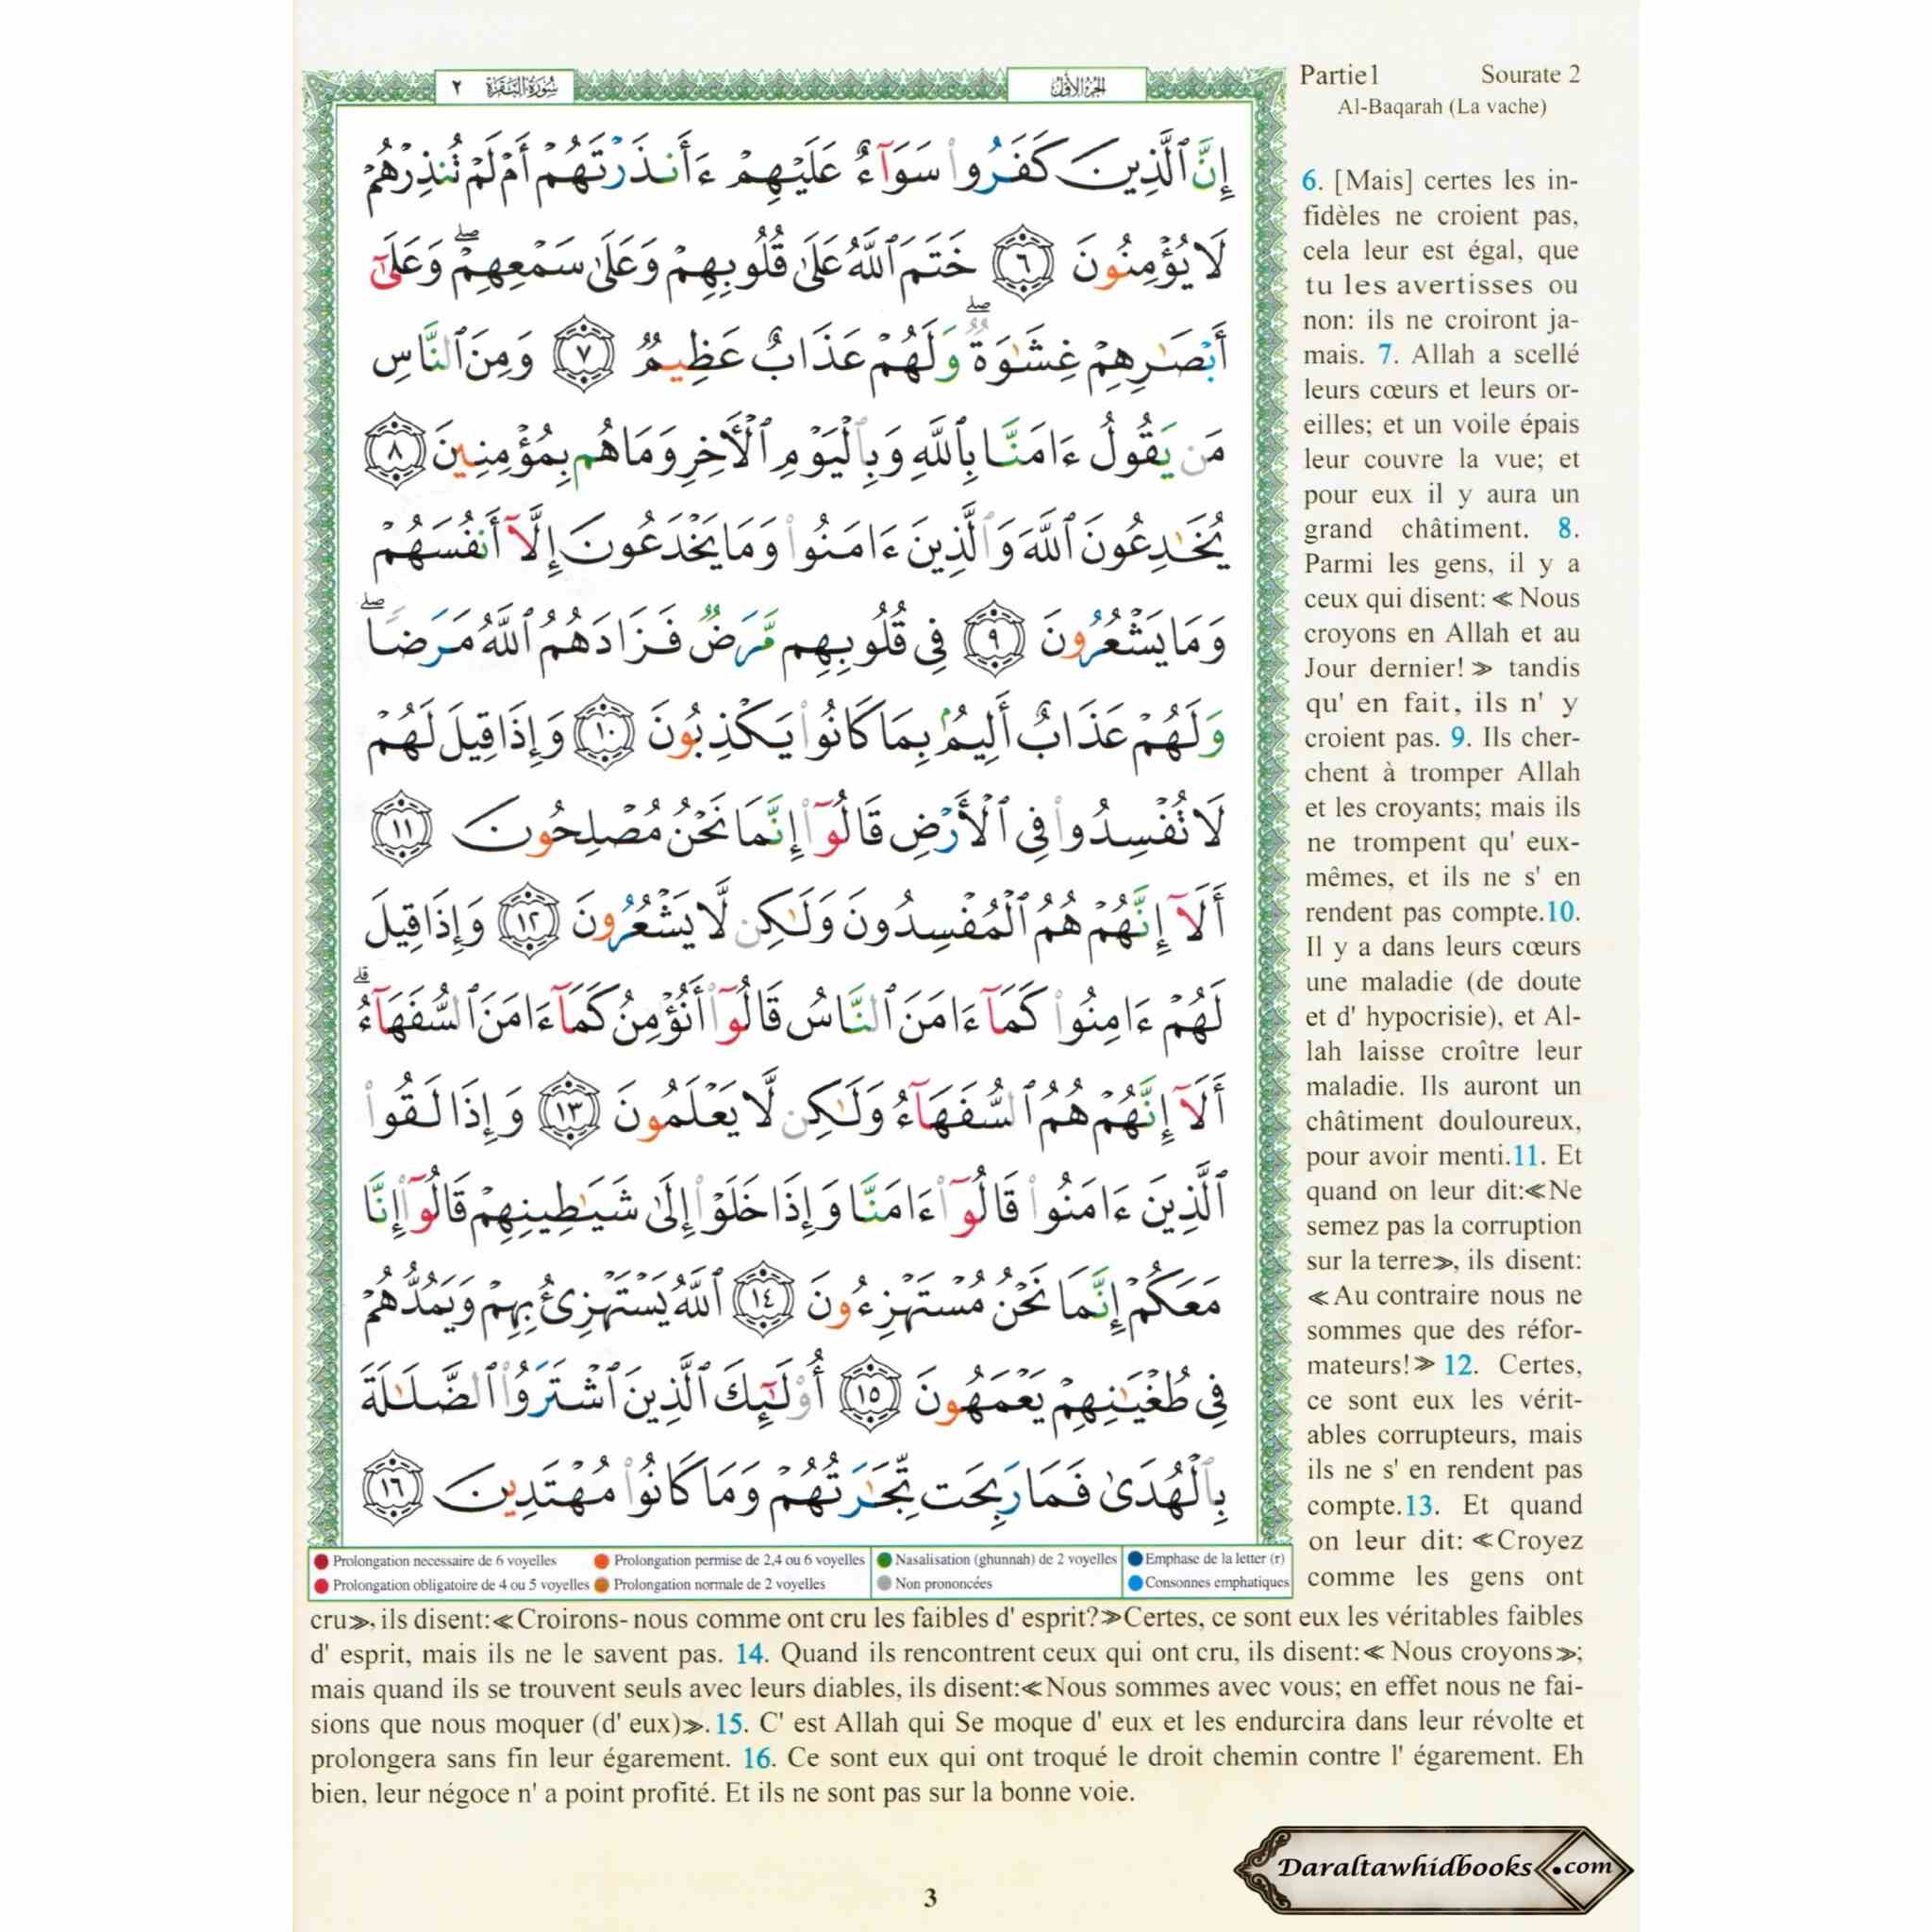 سورة البقرة ٢
الجزء الأول
Partie1 Sourate 2
Al-Baqarah (La vache)
إِنَّ ٱلَّذِينَ كَفَرُوا۟ سَوَآءٌ عَلَيْهِمْ ءَأَنذَرْتَهُمْ أَمْ لَمْ تُنذِرْهُمْ
لَا يُؤْمِنُونَ ٦ خَتَمَ ٱللَّهُ عَلَىٰ قُلُوبِهِمْ وَعَلَىٰ سَمْعِهِمْ ۖ وَعَلَىٰٓ
أَبْصَٰرِهِمْ غِشَٰوَةٌ ۖ وَلَهُمْ عَذَابٌ عَظِيمٌ ٧ وَمِنَ ٱلنَّاسِ
مَن يَقُولُ ءَامَنَّا بِٱللَّهِ وَبِٱلْيَوْمِ ٱلْأَخِرِ وَمَا هُم بِمُؤْمِنِينَ ٨
يُخَٰدِعُونَ ٱللَّهَ وَٱلَّذِينَ ءَامَنُوا۟ وَمَا يَخْدَعُونَ إِلَّآ أَنفُسَهُمْ
وَمَا يَشْعُرُونَ ٩ فِى قُلُوبِهِم مَّرَضٌ فَزَادَهُمُ ٱللَّهُ مَرَضًا ۖ
وَلَهُمْ عَذَابٌ أَلِيمٌۢ بِمَا كَانُوا۟ يَكْذِبُونَ ١٠ وَإِذَا قِيلَ لَهُمْ
لَا تُفْسِدُوا۟ فِى ٱلْأَرْضِ قَالُوٓا۟ إِنَّمَا نَحْنُ مُصْلِحُونَ ١١
أَلَآ إِنَّهُمْ هُمُ ٱلْمُفْسِدُونَ وَلَٰكِن لَّا يَشْعُرُونَ ١٢ وَإِذَا قِيلَ
لَهُمْ ءَامِنُوا۟ كَمَآ ءَامَنَ ٱلنَّاسُ قَالُوٓا۟ أَنُؤْمِنُ كَمَآ ءَامَنَ ٱلسُّفَهَآءُ ۗ
أَلَآ إِنَّهُمْ هُمُ ٱلسُّفَهَآءُ وَلَٰكِن لَّا يَعْلَمُونَ ١٣ وَإِذَا لَقُوا۟
ٱلَّذِينَ ءَامَنُوا۟ قَالُوٓا۟ ءَامَنَّا وَإِذَا خَلَوْا۟ إِلَىٰ شَيَٰطِينِهِمْ قَالُوٓا۟ إِنَّا
مَعَكُمْ إِنَّمَا نَحْنُ مُسْتَهْزِءُونَ ١٤ ٱللَّهُ يَسْتَهْزِئُ بِهِمْ وَيَمُدُّهُمْ
فِى طُغْيَٰنِهِمْ يَعْمَهُونَ ١٥ أُو۟لَٰٓئِكَ ٱلَّذِينَ ٱشْتَرَوُا۟ ٱلضَّلَٰلَةَ
بِٱلْهُدَىٰ فَمَا رَبِحَت تِّجَٰرَتُهُمْ وَمَا كَانُوا۟ مُهْتَدِينَ ١٦
Prolongation necessaire de 6 voyelles Prolongation permise de 2,4 ou 6 voyelles Nasalisation (ghunnah) de 2 voyelles Emphase de la letter (r)
Prolongation obligatoire de 4 ou 5 voyelles Prolongation normale de 2 voyelles Non prononcées Consonnes emphatiques
6. [Mais] certes les in-
fidèles ne croient pas,
cela leur est égal, que
tu les avertisses ou
non: ils ne croiront ja-
mais. 7. Allah a scellé
leurs cœurs et leurs or-
eilles; et un voile épais
leur couvre la vue; et
pour eux il y aura un
grand châtiment. 8.
Parmi les gens, il y a
ceux qui disent: ≪ Nous
croyons en Allah et au
Jour dernier! ≫ tandis
qu' en fait, ils n' y
croient pas. 9. Ils cher-
chent à tromper Allah
et les croyants; mais ils
ne trompent qu' eux-
mêmes, et ils ne s' en
rendent pas compte.10.
Il y a dans leurs cœurs
une maladie (de doute
et d' hypocrisie), et Al-
lah laisse croître leur
maladie. Ils auront un
châtiment douloureux,
pour avoir menti.11. Et
quand on leur dit:≪Ne
semez pas la corruption
sur la terre≫, ils disent:
≪Au contraire nous ne
sommes que des réfor-
mateurs!≫ 12. Certes,
ce sont eux les vérit-
ables corrupteurs, mais
ils ne s' en rendent pas
compte.13. Et quand
on leur dit: ≪Croyez
comme les gens ont
cru≫, ils disent:≪Croirons- nous comme ont cru les faibles d' esprit?≫Certes, ce sont eux les véritables faibles
d' esprit, mais ils ne le savent pas. 14. Quand ils rencontrent ceux qui ont cru, ils disent:≪ Nous croyons≫;
mais quand ils se trouvent seuls avec leurs diables, ils disent:≪Nous sommes avec vous; en effet nous ne fai-
sions que nous moquer (d' eux)≫.15. C' est Allah qui Se moque d' eux et les endurcira dans leur révolte et
prolongera sans fin leur égarement. 16. Ce sont eux qui ont troqué le droit chemin contre l' égarement. Eh
bien, leur négoce n' a point profité. Et ils ne sont pas sur la bonne voie.
Daraltawhidbooks.com
3